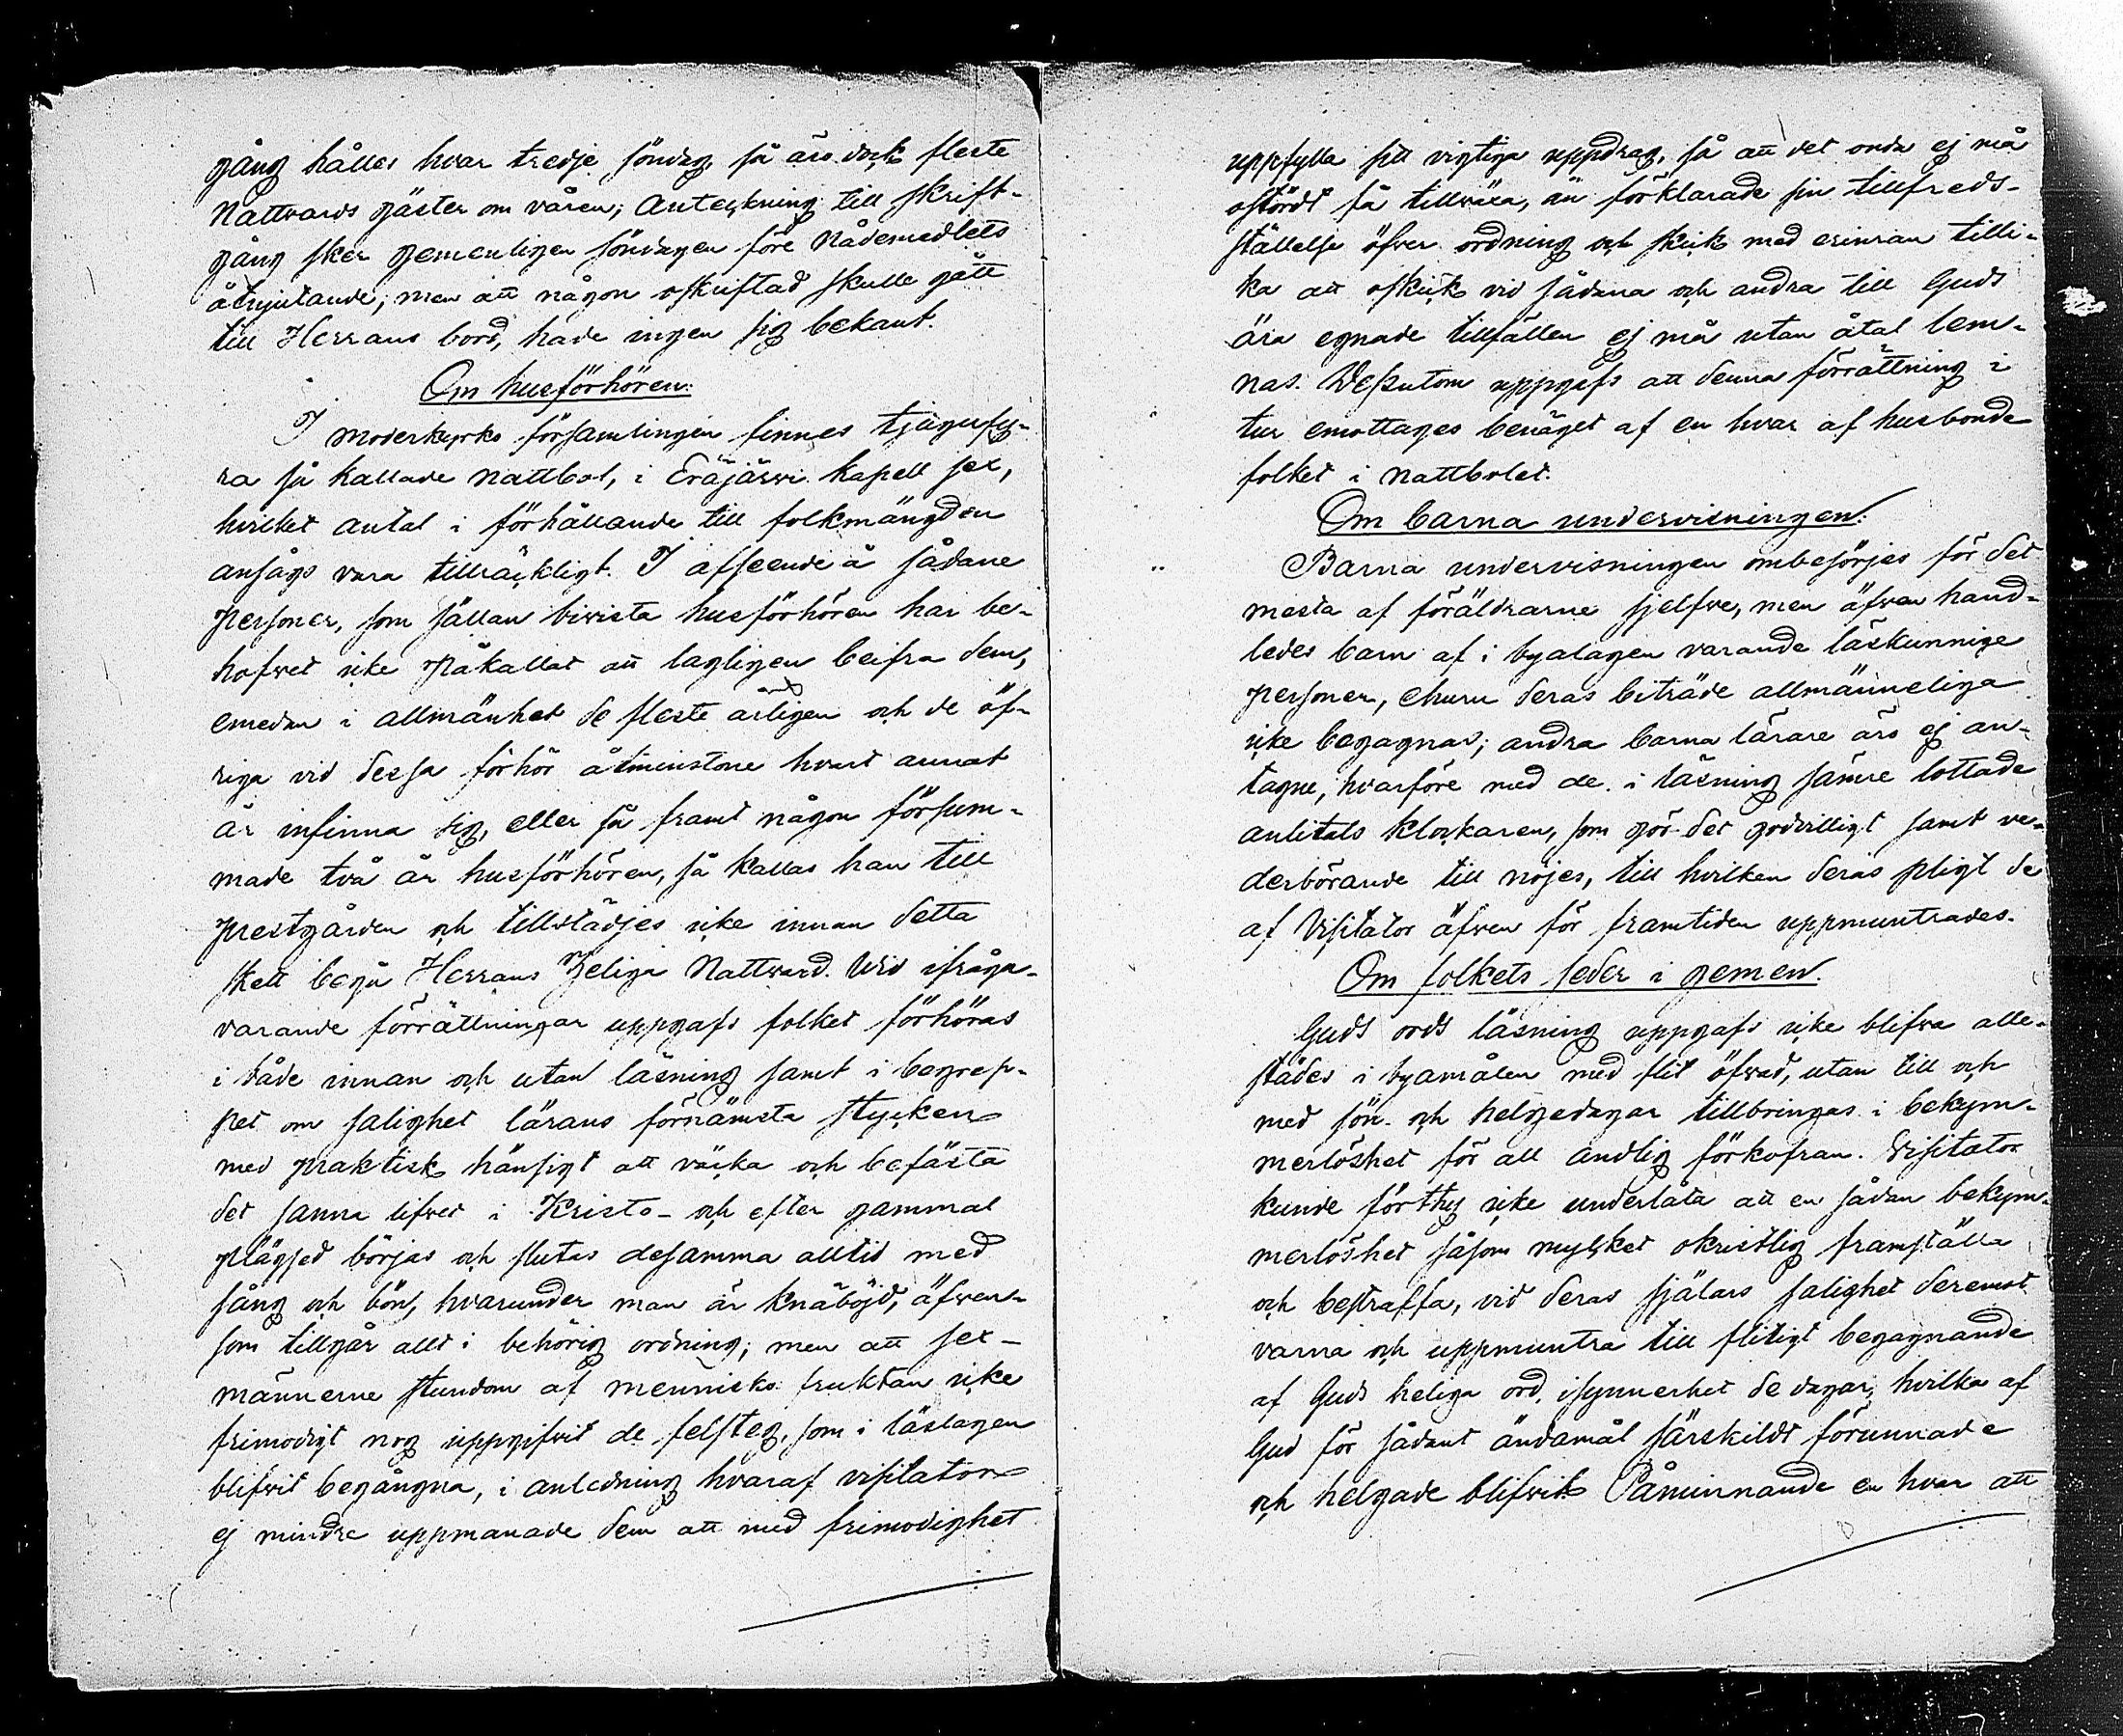 gång hålles hvar tredje söndag, så äro dock fleste
Nattvards gäster om våren; Anteckning till skrift-
gång sker gemenligen söndagen före Nådemedlets
åtnjutande; men att någon oskriftad skulle gått
till Herrans bord, hade ingen sig bekant.
Om husförhören:
I moderkyrko församlingen finnes tjugufy-
ra så kallade nattbol, i Eräjärvi kapell sex,
hvilket antal i förhållande till folkmängden
ansågs vara tillräckligt. I afseende å sådane
personer, som sällan bivista husförhören har be-
hofvet icke påkallat att lagligen beifra dem,
emedan i allmänhet de fleste årligen och de öf-
riga vid dessa förhör åtminstone hvart annat
år infinna sig, eller så framt någon försum-
made två år husförhören, så kallas han till
prestgården och tillstädjes icke innan detta
skett begå Herrans Heliga Nattvard. Wid ifråga-
varande förrättningar uppgafs folket förhöras
i både innan och utan läsning samt i begrep-
pet om salighet lärans förnämsta stycken
med praktisk hänsigt att väcka och befästa
det sanna lifvet i Kristo - och efter gammal
plägsed börjas och slutas desamma alltid med
sång och bön, hvarunder man är knäböjd, äfven-
som tillgår allt i behörig ordning; men att sex-
männerne stundom af mennisko fruktan icke
frimodigt nog uppgifvit de felsteg, som i läslagen
blifvit begångna, i anledning hvaraf visitator
ej mindre uppmanade dem att med frimodighet
uppfylla sitt vigtiga uppdrag, så att det onda ej må
ostördt få tillväxa, än förklarade sin tillfreds-
ställelse öfver ordning och skick med erinran tilli-
ka att oskick vid sådana och andra till Guds
ära egnade tillfällen ej må utan åtal lem-
nas. Dessutom uppgafs att denna förrättning i
tur emottages benäget af en hvar af husbonde
folket i nattbolet.
Om barna undervisningen.
Barna undervisningen ombesörjes för det
mesta af föräldrarne sjelfve, men äfven hand-
ledes barn af i byalagen varande läskunnige
personer, ehuru deras biträde allmänneliga
icke begagnas; andra barna lärare äro ej an-
tagne, hvarföre med de i läsning sämre lottade
anlitats klockaren, som gör det godvilligt samt ve-
derbörande till nöjes, till hvilken deras pligt de
af Visitator äfven för framtiden uppmuntrades.
Om folkets seder i gemen.
Guds ords läsning uppgafs icke blifva alle-
städes i byamålen med flit öfvad, utan till och
med sön- och helgedagar tillbringas i bekym-
merlöshet för all andlig förkofran. Visitator
kunde förthy icke underlåta att en sådan bekym-
merlöshet såsom mycket okristlig framställa
och bestraffa, vid deras själars salighet deremot
varna och uppmuntra till flitigt begagnande
af Guds heliga ord, isynnerhet de dagar, hvilka af
Gud för sådant ändamål särskildt förunnade
och helgade blifvit. Påminnande en hvar att